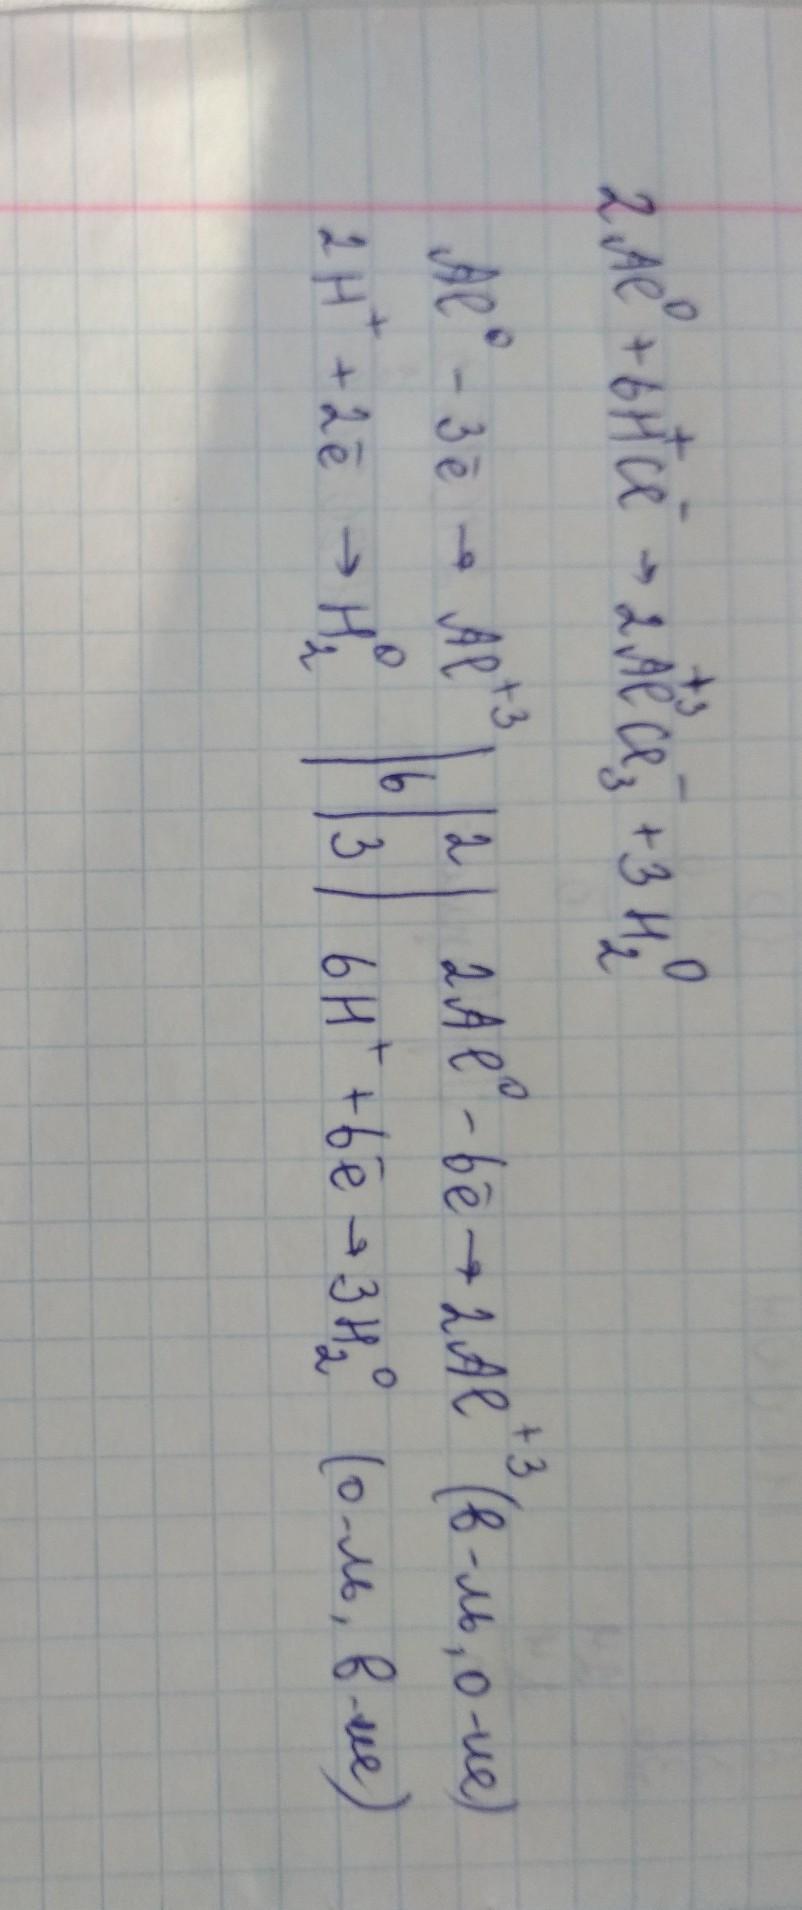 2Al⁰ + 6H⁺Cl⁻ → 2Al⁺³Cl₃⁻ + 3H₂⁰
Al⁰ - 3ē → Al⁺³ | | 2 | 2Al⁰ - 6ē → 2Al⁺³ (в-ль, о-ие)
6
2H⁺ + 2ē → H₂⁰ | | 3 | 6H⁺ + 6ē → 3H₂⁰ (о-ль, в-ие)